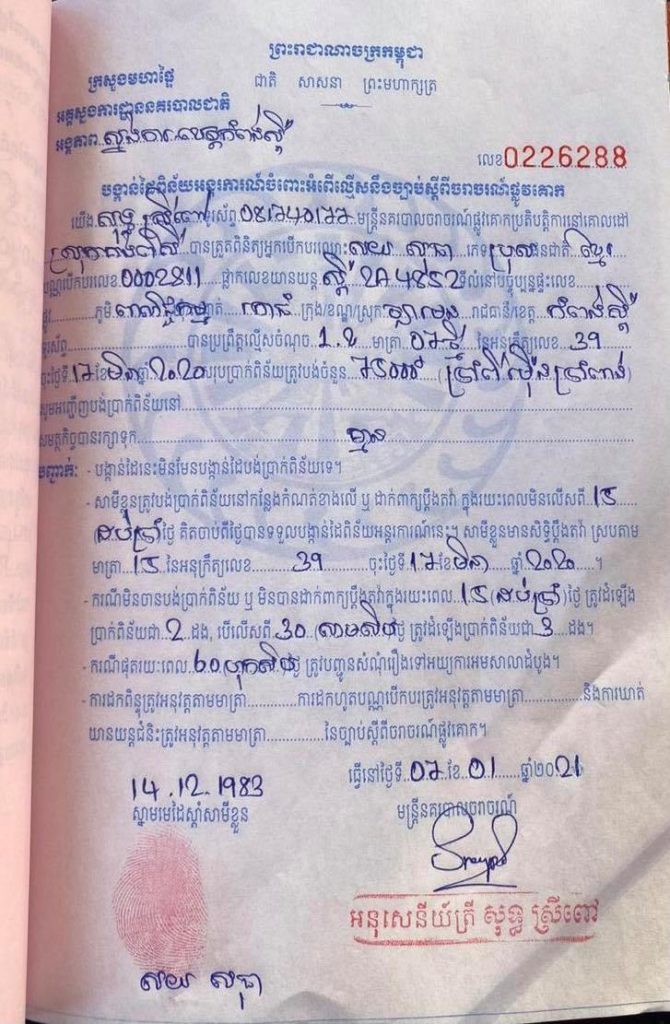 ព្រះរាជាណាចក្រកម្ពុជា
ក្រសួងមហាផ្ទៃ
ជាតិ សាសនា ព្រះមហាក្សត្រ
អគ្គស្នងការដ្ឋាននគរបាលជាតិ
អង្គភាព..ស្នងការ..ខេត្តកំពង់ស្ពឺ
លេខ 0226288
បង្កាន់ដៃពិន័យអន្តរការណ៍ចំពោះអំពើល្មើសនឹងច្បាប់ស្តីពីចរាចរណ៍ផ្លូវគោក
យើង សុទ្ធ ស្រីពៅ មន្ត្រីនគរបាលចរាចរណ៍ផ្លូវគោកប្រតិបត្តិការនៅគោលដៅ
បានត្រួតពិនិត្យអ្នកបើកបរឈ្មោះ ភេទ ប្រុស ជនជាតិ ខ្មែរ
បណ្ណបើកបរលេខ 0002811 ផ្លាកលេខយានយន្ត ស្ពឺ 2A 4852 ទីលំនៅបច្ចុប្បន្នផ្ទះលេខ
ផ្លូវ ភូមិ ក្រុង/ខណ្ឌ/ស្រុក ច្បារមន រាជធានី/ខេត្ត កំពង់ស្ពឺ
ទូរស័ព្ទ បានប្រព្រឹត្តល្មើសចំណុច មាត្រា នៃអនុក្រឹត្យលេខ 39
ចុះថ្ងៃទី ១៤ ខែ មីនា ឆ្នាំ ២០២០ សរុបប្រាក់ពិន័យត្រូវបង់ចំនួន (ប្រាំពីរម៉ឺនប្រាំពាន់)
សូមអញ្ជើញបង់ប្រាក់ពិន័យនៅ
សមត្ថកិច្ចបានរក្សាទុក គ្មាន
បញ្ជាក់: - បង្កាន់ដៃនេះមិនមែនបង្កាន់ដៃបង់ប្រាក់ពិន័យទេ។
- សាមីខ្លួនត្រូវបង់ប្រាក់ពិន័យនៅកន្លែងកំណត់ខាងលើ ឬ ដាក់ពាក្យប្តឹងតវ៉ា ក្នុងរយៈពេលមិនលើសពី ១៥
(ដប់ប្រាំ) ថ្ងៃ គិតចាប់ពីថ្ងៃបានទទួលបង្កាន់ដៃពិន័យអន្តរការណ៍នេះ។ សាមីខ្លួនមានសិទ្ធិប្តឹងតវ៉ា ស្របតាម
មាត្រា ១៥ នៃអនុក្រឹត្យលេខ 39 ចុះថ្ងៃទី ១៤ ខែ មីនា ឆ្នាំ ២០២០ ។
- ករណីមិនបានបង់ប្រាក់ពិន័យ ឬ មិនបានដាក់ពាក្យប្តឹងតវ៉ាក្នុងរយៈពេល ១៥ (ដប់ប្រាំ) ថ្ងៃ ត្រូវដំឡើង
ប្រាក់ពិន័យជា 2 ដង, បើលើសពី 30 (សាមសិប) ថ្ងៃ ត្រូវដំឡើងប្រាក់ពិន័យជា 3 ដង។
- ករណីផុតរយៈពេល ៦០ (ហុកសិប) ថ្ងៃ ត្រូវបញ្ជូនសំណុំរឿងទៅអយ្យការអមសាលាដំបូង។
- ការដកពិន្ទុត្រូវអនុវត្តតាមមាត្រា............ការដកហូតបណ្ណបើកបរត្រូវអនុវត្តតាមមាត្រា............និងការឃាត់
យានយន្តជំនិះត្រូវអនុវត្តតាមមាត្រា............នៃច្បាប់ស្តីពីចរាចរណ៍ផ្លូវគោក។
ធ្វើនៅថ្ងៃទី ខែ 01 ឆ្នាំ២០21
14.12.1983
មន្ត្រីនគរបាលចរាចរណ៍
ស្នាមមេដៃស្តាំសាមីខ្លួន
អនុសេនីយ៍ត្រី សុទ្ធ ស្រីពៅ